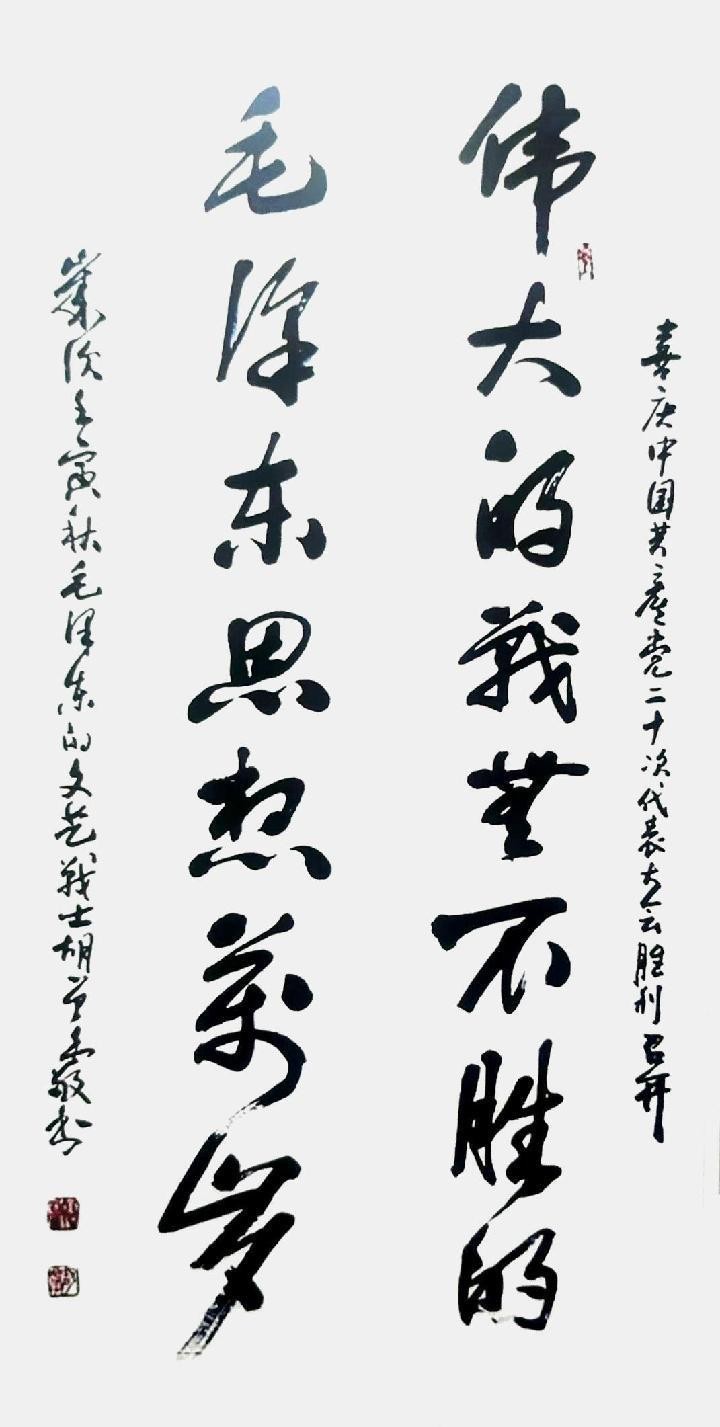 喜庆中国共產党二十次代表大会胜利召开
伟大的战無不胜的
毛泽东思想萬岁
歲次壬寅秋毛泽东的文艺战士胡敬书